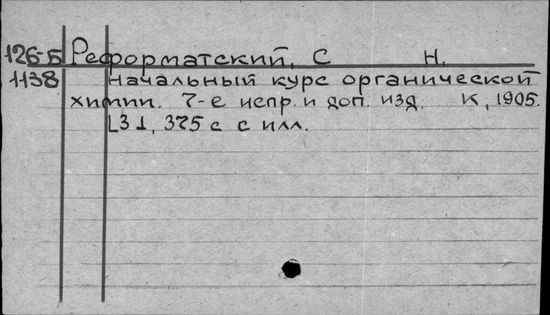 126-Б Реформатский, С Н.
1138 Начальный курс органической
химии. 7-е испр. и доп. изд. К, 1905.
[3], 375 с с илл.